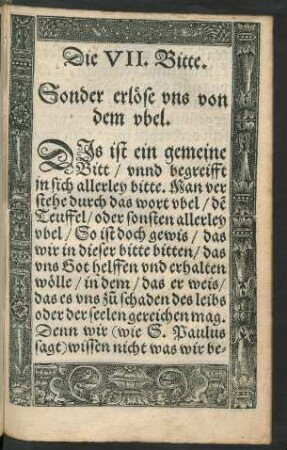 Die VII. Bitte.
Sonder erlöse vns von
dem vbel.
DJs ist ein gemeine
Bitt / vnnd begreifft
jn sich allerley bitte. Man ver
stehe durch das wort vbel / dē
Teuffel / oder sonsten allerley
vbel / So ist doch gewis / das
wir in dieser bitte bitten / das
vns Got helffen vnd erhalten
wölle / in dem / das er weis /
das es vns zů schaden des leibs
oder der seelen gereichen mag.
Denn wir (wie S. Paulus
sagt) wissen nicht was wir be-